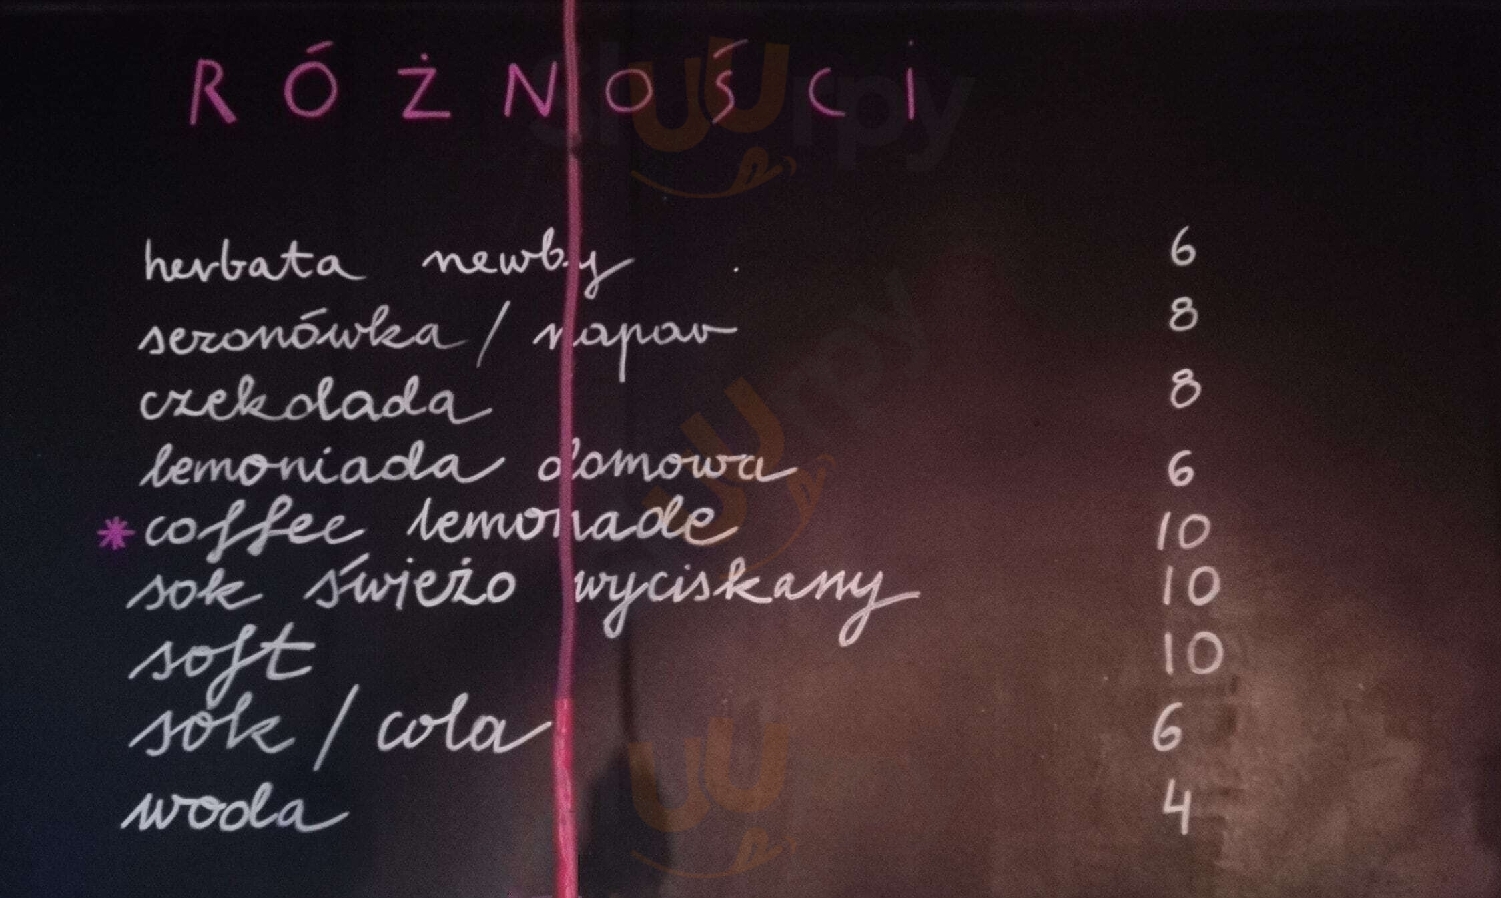 RÓŻNOŚCI
herbata newby 6
sezonówka / napar 8
czekolada 8
lemoniada domowa 6
* coffee lemonade 10
sok świeżo wyciskany 10
soft 10
sok / cola 6
woda 4
sluurpy
sluurpy